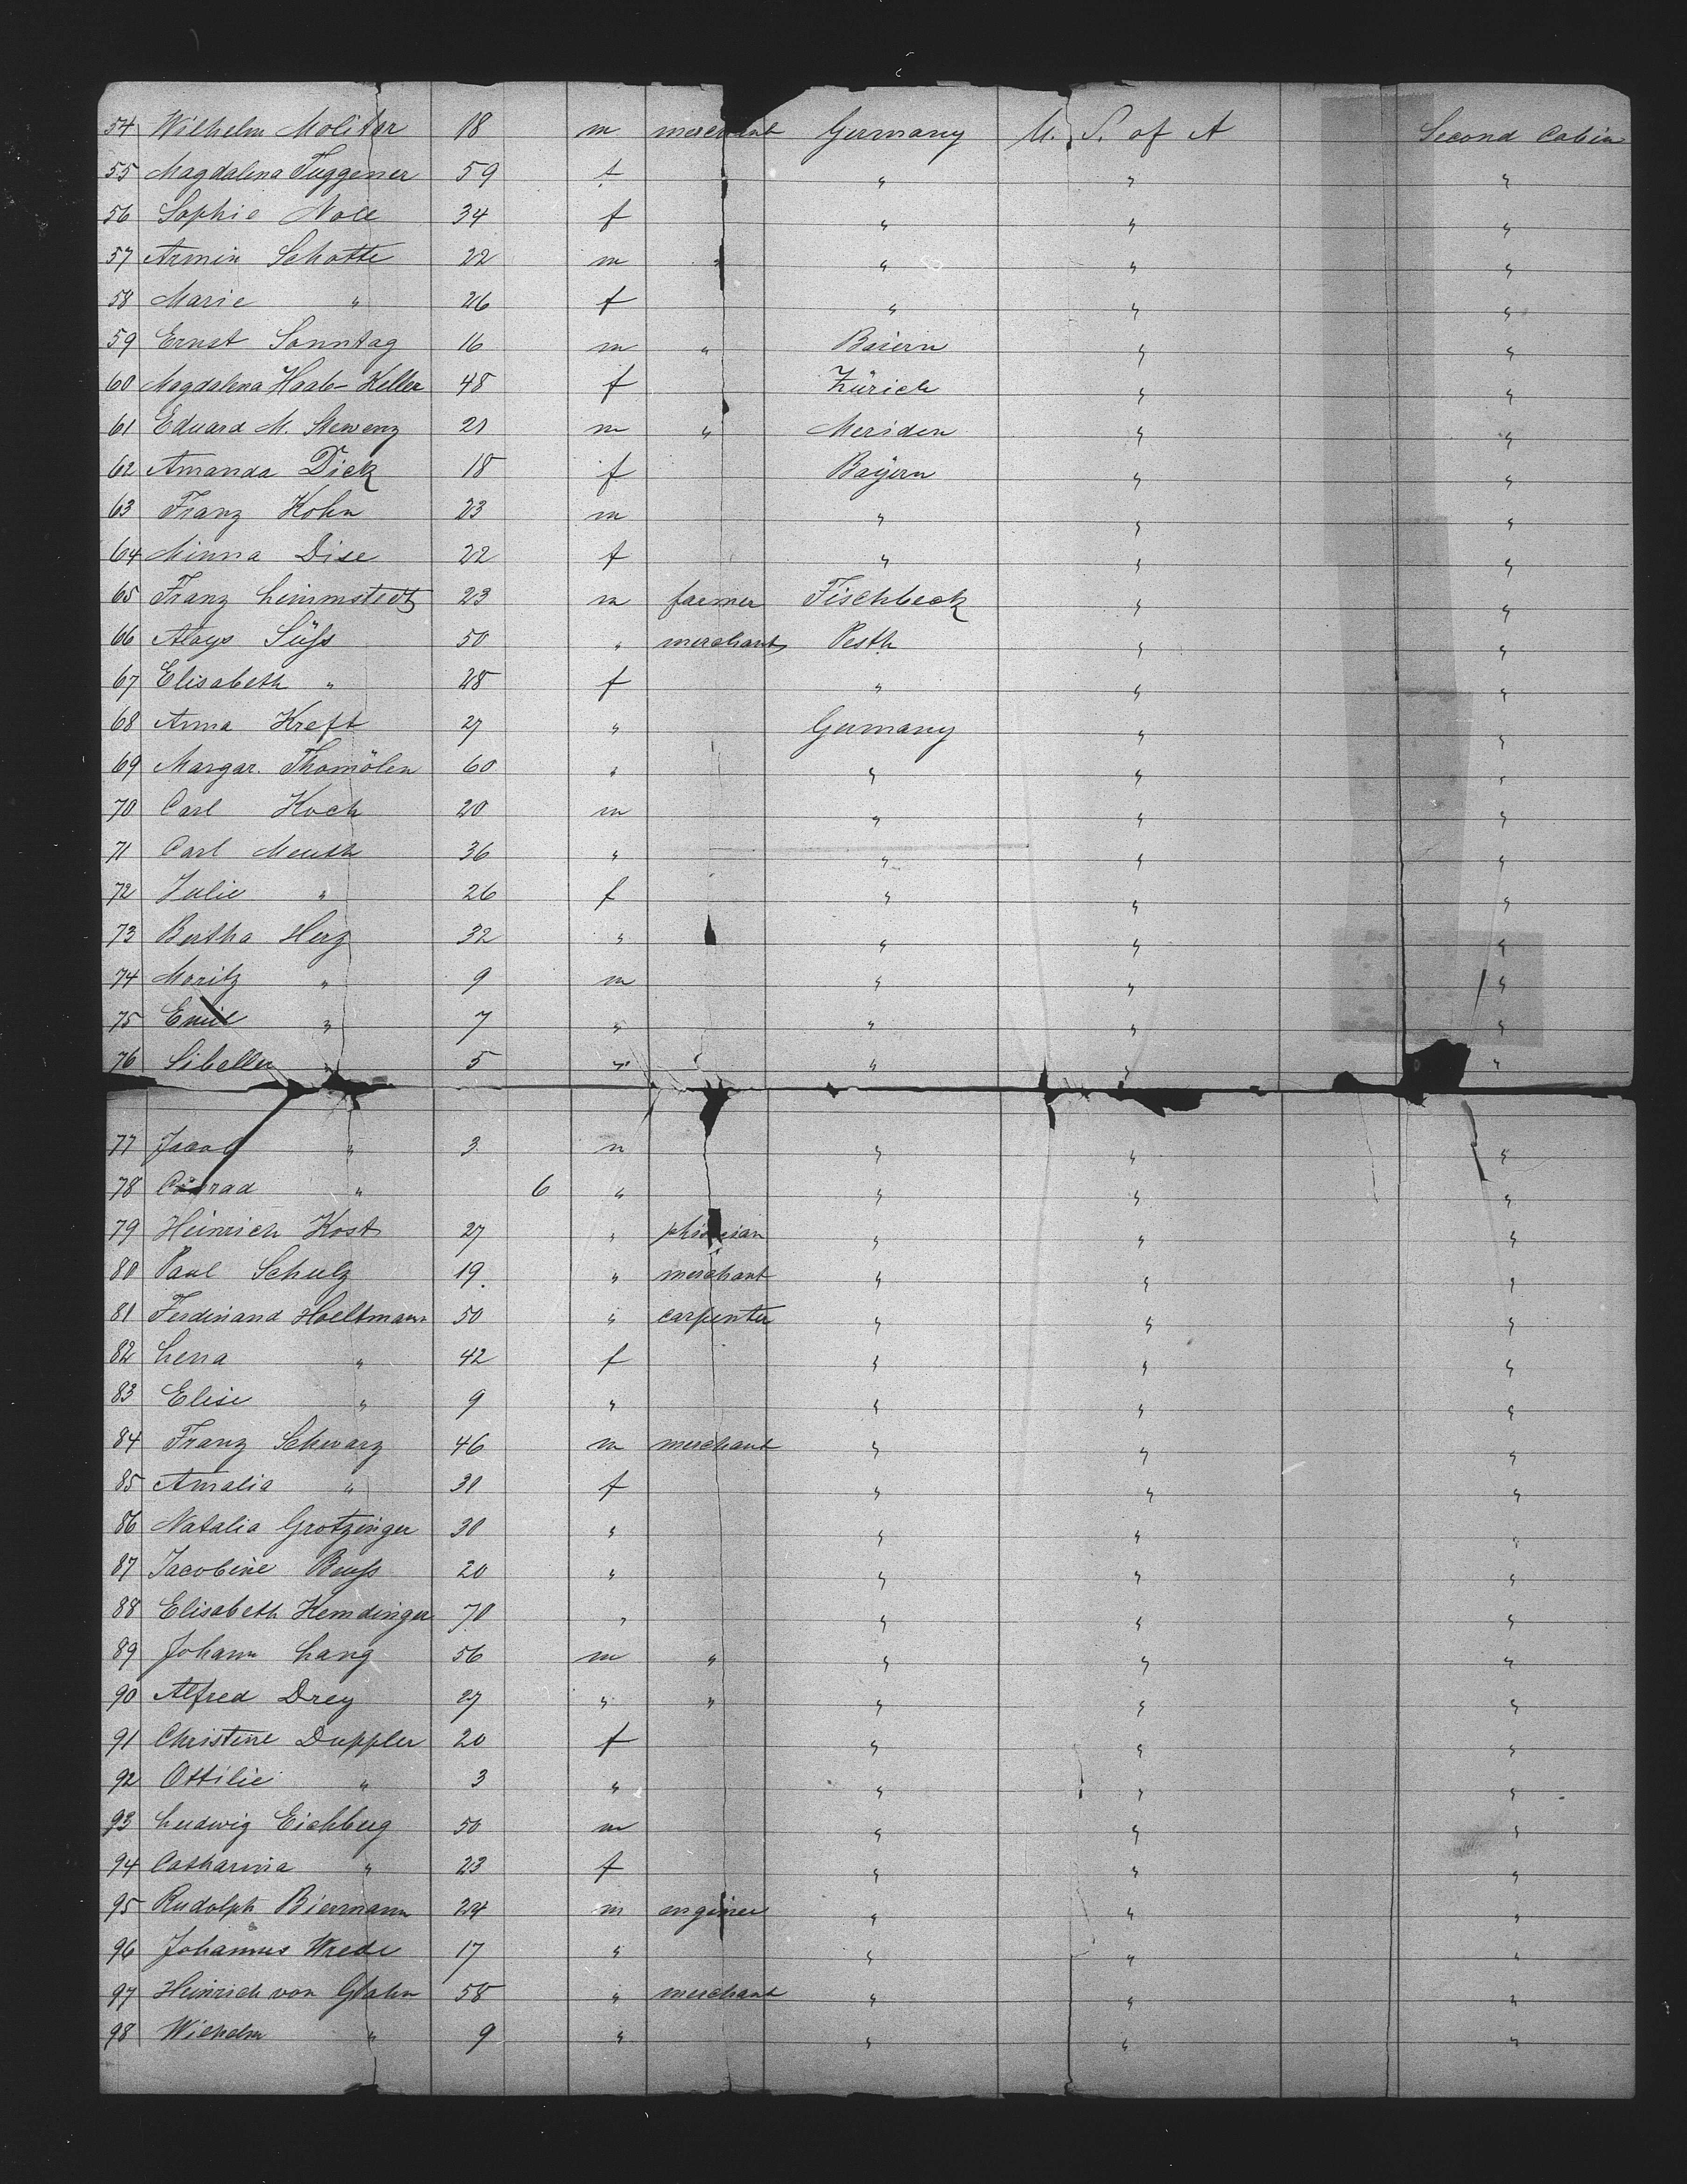 54 Wilhelm Molitor 18 m merchant Germany U. S. of A Second Cabin
55 Magdalena Tuggener 59 f " " "
56 Sophie Noll 34 f " " "
57 Armin Schotte 22 m " " " "
58 Marie " 26 f " " "
59 Ernst Sonntag 16 m " Baiern " "
60 Magdalena Haab-Keller 48 f Zürich " "
61 Eduard M. 21 m " Meriden " "
62 Amanda Dick 18 f Bayern " "
63 Franz Kohn 23 m " " "
64 Minna Dise 22 f " " "
65 Franz Limmstedt 23 m farmer Fischbeck " "
66 Aloys Süſs 50 " merchant Pesth " "
67 Elisabeth " 28 f " " "
68 Anna Kreft 27 " Germany " "
69 Margar. Thomölen 60 " " " "
70 Carl Koch 20 m " " "
71 Carl Meuth 36 " " " "
72 Julie " 26 f " " "
73 Bertha Herz 32 " " " "
74 Moritz " 9 m " " "
75 Emil " 7 " " " "
76 Sibella 5 " " " "
77 Jacob " 3 m " " "
78 Conrad " 6 " " " "
79 Heinrich Kost 27 " " " "
80 Paul Schulz 19 " merchant " " "
81 Ferdinand Hoeltmann 50 " carpenter " " "
82 Lena " 42 f " " "
83 Elise " 9 " " " "
84 Franz Schwarz 46 m merchant " " "
85 Amalia " 31 f " " "
86 Natalia Grotzinger 30 " " " "
87 Jacobine Beuſs 20 " " " "
88 Elisabeth Hemdinger 70 " " " "
89 Johann Lang 56 m " " " "
90 Alfred Drey 27 " " " " "
91 Christine Duppler 20 f " " "
92 Ottilie " 3 " " " "
93 Ludwig Eichberg 50 m " " "
94 Catharina " 23 f " " "
95 Rudolph Biermann 24 m enginer " " "
96 Johannes Wrede 17 " " " "
97 Heinrich von Glahn 58 " merchant " " "
98 Wilhelm " 9 " " " "